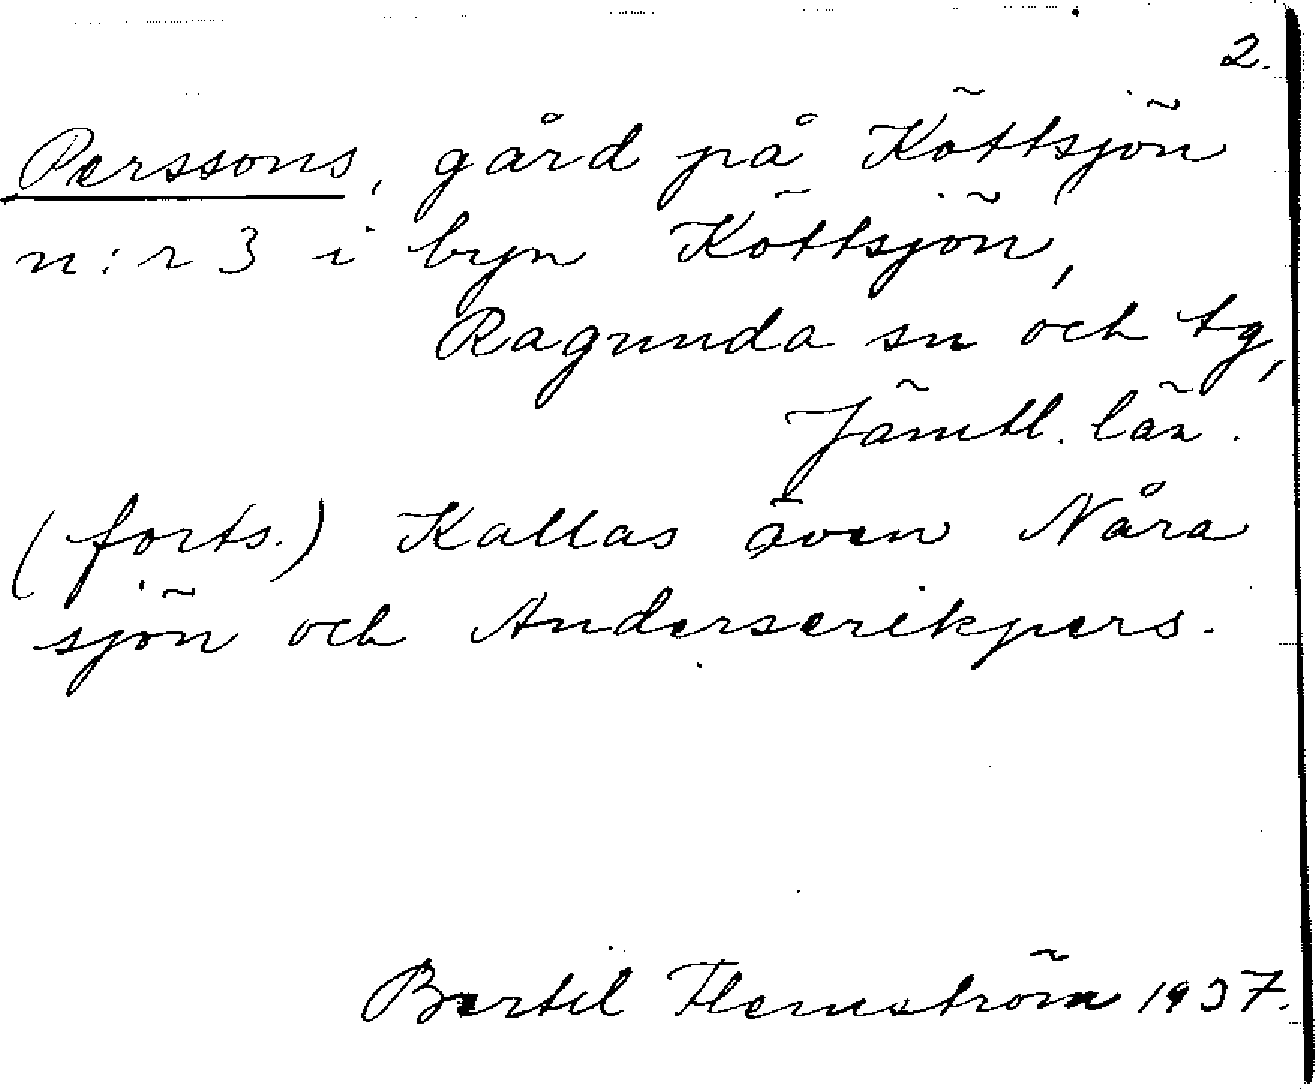 2.
Perssons, gård på Köttsjön
n:r 3 i byn Köttsjön,
Ragunda sn och tg,
Jämtl. län.
(forts.) Kallas även Nåra
sjön och Anderserikpers.
Bertil Flemström 1937.